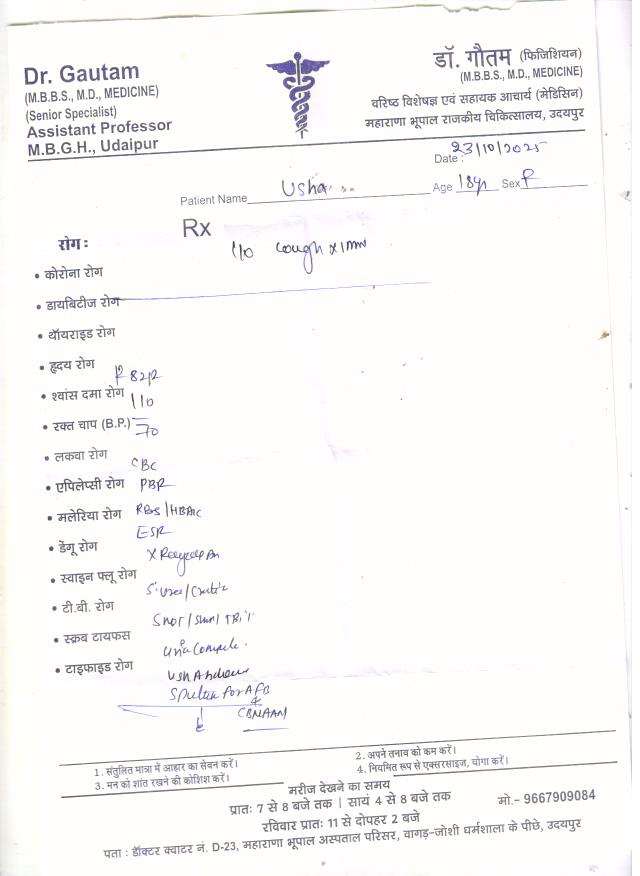 Dr. Gautam
(M.B.B.S., M.D., MEDICINE)
(Senior Specialist)
Assistant Professor
M.B.G.H., Udaipur
डॉ. गौतम (फिजिशियन)
(M.B.B.S., M.D., MEDICINE)
वरिष्ठ विशेषज्ञ एवं सहायक आचार्य (मेडिसिन)
महाराणा भूपाल राजकीय चिकित्सालय, उदयपुर
Date : 23/10/2025
Patient Name Usha Age 18yr Sex F
Rx
रोग :
cough x 1
• कोरोना रोग
• डायबिटीज रोग
• थॉयराइड रोग
• हृदय रोग
P 82/2
• श्वांस दमा रोग
110
• रक्त चाप (B.P.)
70
• लकवा रोग
CBC
• एपिलेप्सी रोग PBF
• मलेरिया रोग RBS/HBA1C
ESR
• डेंगू रोग
X Ray
• स्वाइन फ्लू रोग
S. Urea/
• टी.बी. रोग
SGOT/
• स्क्रब टायफस
Urine Complete.
• टाइफाइड रोग
USG Abdomen
Sputum for AFB
&
CBNAAT
1. संतुलित मात्रा में आहार का सेवन करें।
2. अपने तनाव को कम करें।
3. मन को शांत रखने की कोशिश करें।
4. नियमित रूप से एक्सरसाइज, योगा करें।
मरीज देखने का समय
प्रातः 7 से 8 बजे तक | सायं 4 से 8 बजे तक
मो.- 9667909084
रविवार प्रातः 11 से दोपहर 2 बजे
पता : डॉक्टर क्वाटर नं. D-23, महाराणा भूपाल अस्पताल परिसर, वागड़-जोशी धर्मशाला के पीछे, उदयपुर